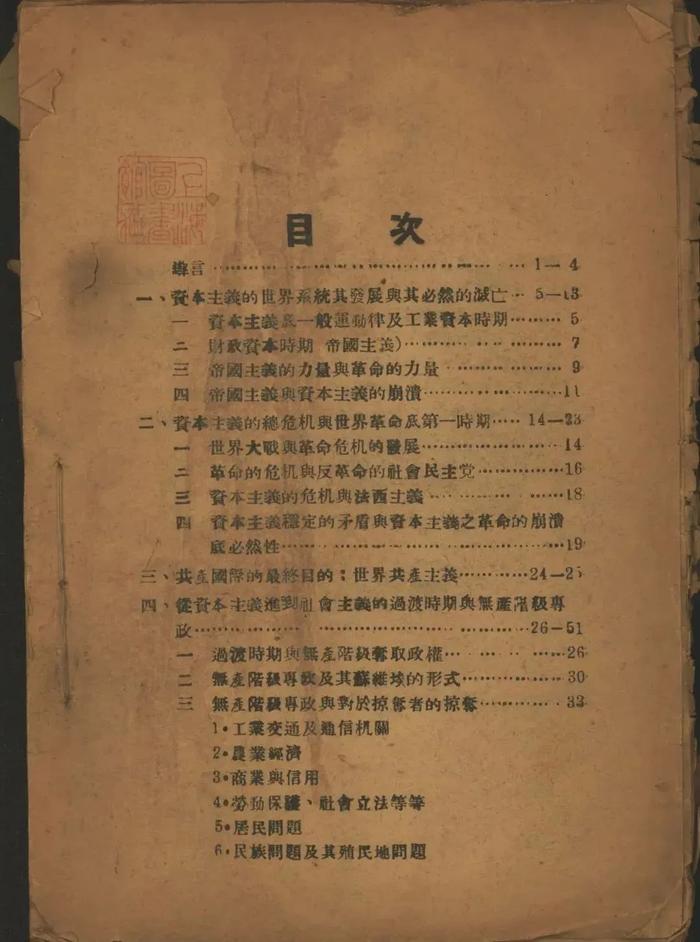 上海圖書館藏
目次
導言 1—4
一、資本主義的世界系統其發展與其必然的滅亡 5—13
一 資本主義底一般運動律及工業資本時期 5
二 財政資本時期 帝國主義) 7
三 帝國主義的力量與革命的力量 9
四 帝國主義與資本主義的崩潰 11
二、資本主義的總危机與世界革命底第一時期 14—23
一 世界大戰與革命危机的發展 14
二 革命的危机與反革命的社會民主党 16
三 資本主義的危机與法西主義 18
四 資本主義穩定的矛盾與資本主義之革命的崩潰
底必然性 19
三、共產國際的最終目的：世界共產主義 24—25
四、從資本主義進到社會主義的過渡時期與無產階級專
政 26—51
一 過渡時期與無產階級奪取政權 26
二 無產階級專政及其蘇維埃的形式 30
三 無產階級專政與對於掠奪者的掠奪 33
1•工業交通及通信机關
2•農業經濟
3•商業與信用
4•勞動保護、社會立法等等
5•居民問題
6•民族問題及其殖民地問題